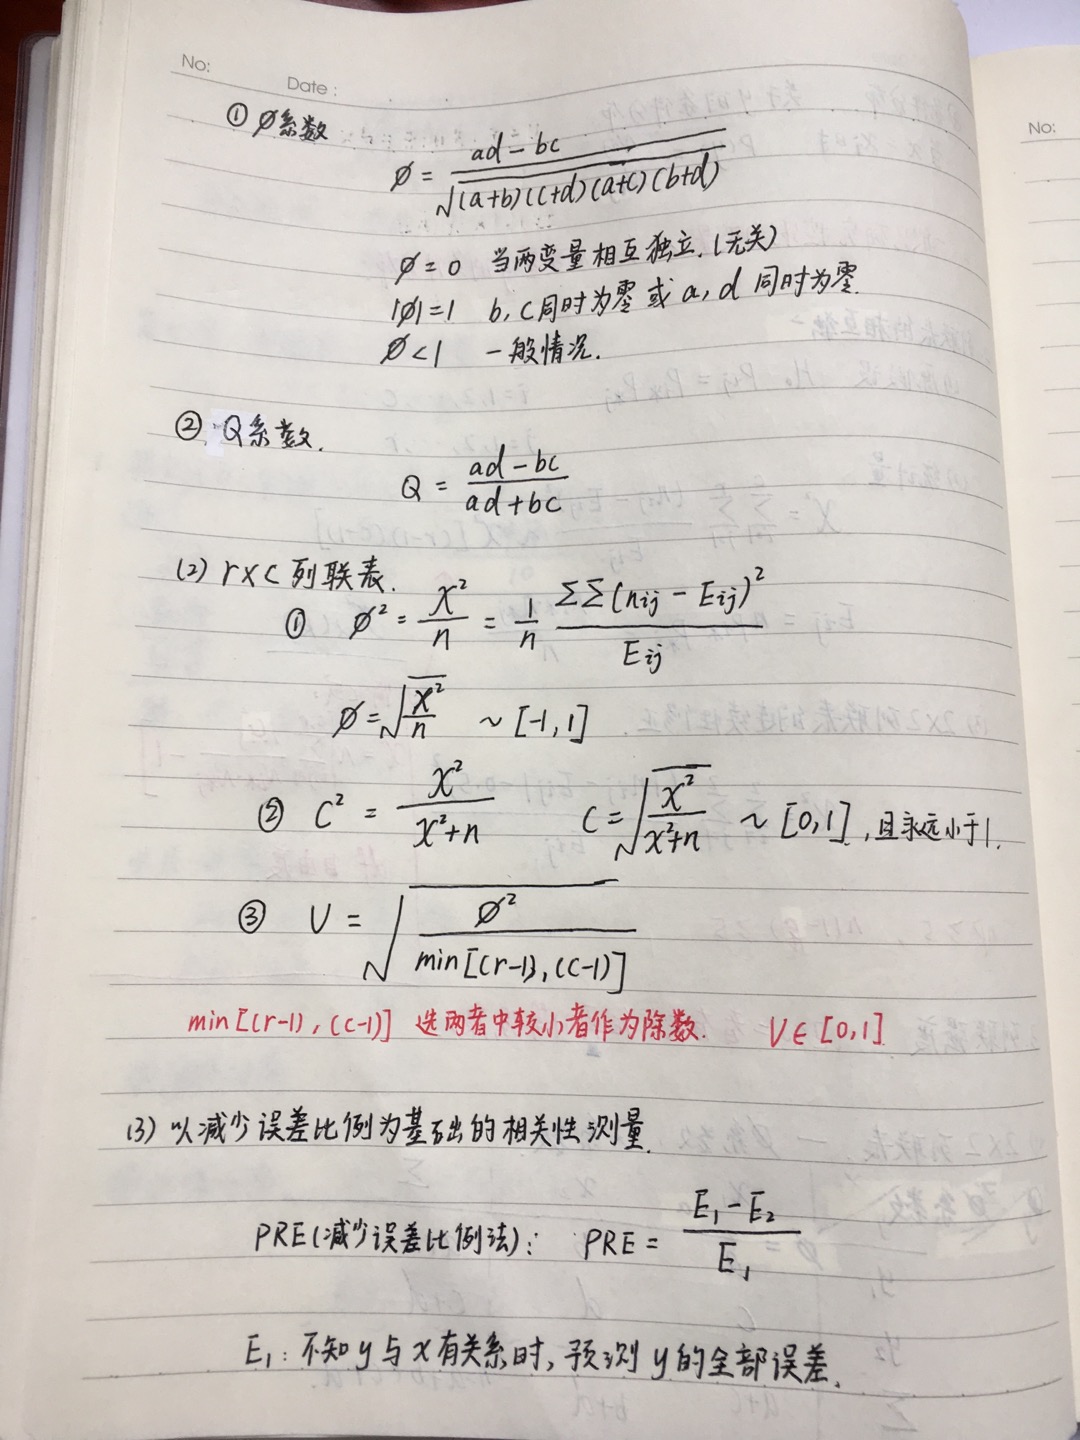 No:
Date :
① ∅系数
∅ = (ad - bc) / √((a+b)(c+d)(a+c)(b+d))
∅ = 0 当两变量相互独立.(无关)
|∅| = 1 b, c同时为零 或 a, d 同时为零.
∅ < 1 一般情况.
② Q系数.
Q = (ad - bc) / (ad + bc)
(2) r×c 列联表.
① ∅² = χ²/n = 1/n ΣΣ(nij - Eij)² / Eij
∅ = √(χ²/n) ~ [-1, 1]
② C² = χ² / (χ²+n) C = √(χ² / (χ²+n)) ~ [0,1], 且永远小于1.
③ V = √(∅² / min[(r-1), (c-1)])
min[(r-1), (c-1)] 选两者中较小者作为除数. V∈[0,1]
(3) 以减少误差比例为基础的相关性测量.
PRE(减少误差比例法): PRE = (E₁ - E₂) / E₁
E₁: 不知y与x有关系时, 预测y的全部误差.
No: